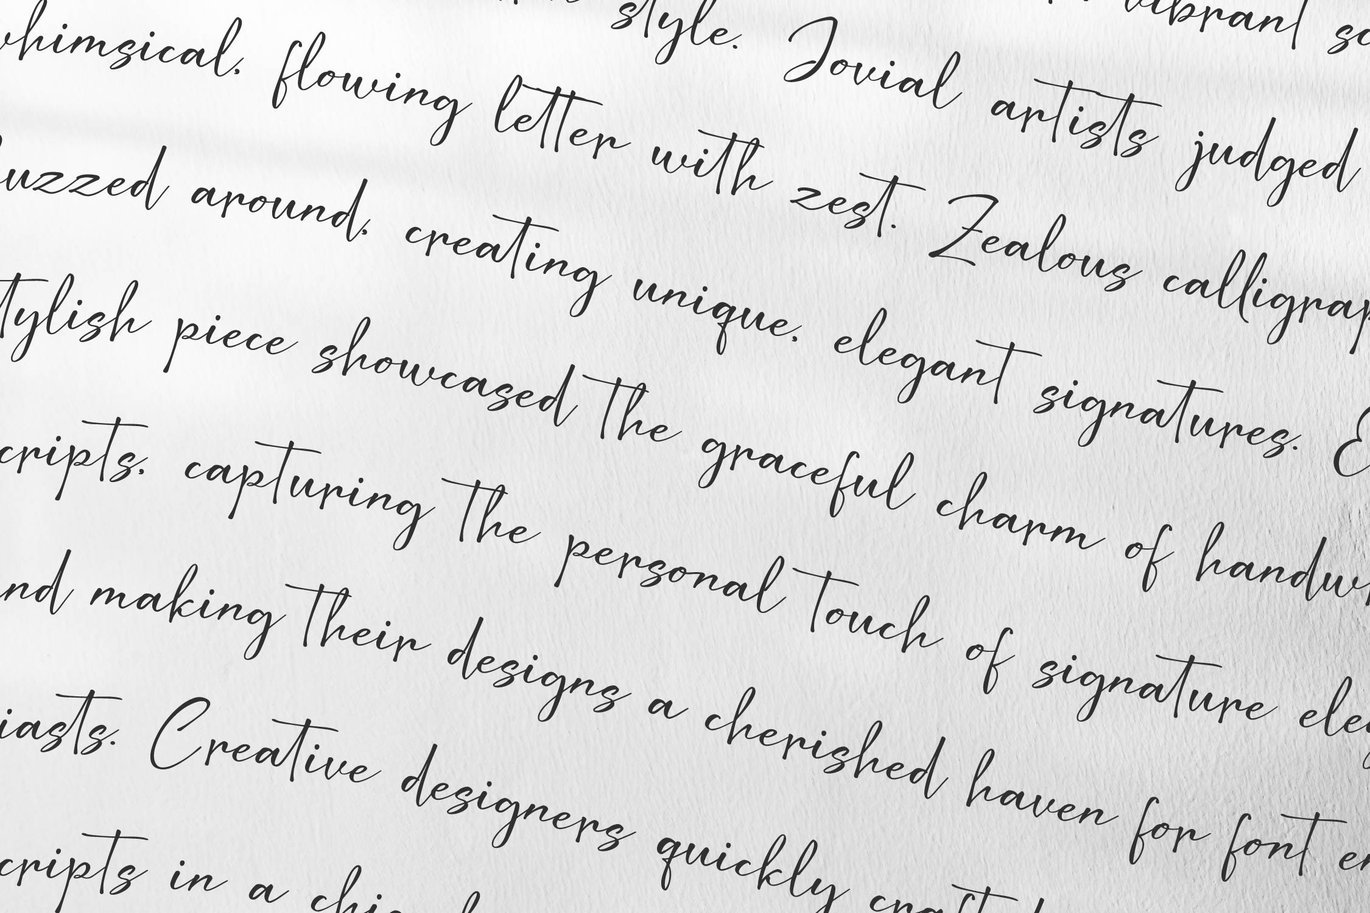 vibrant sc
style. Jovial artists judged
whimsical, flowing letter with zest. Zealous calligrap
uzzed around, creating unique, elegant signatures. E
tylish piece showcased the graceful charm of handw
cripts, capturing the personal touch of signature ele
nd making their designs a cherished haven for font e
iasts. Creative designers quickly craft
cripts in a chic